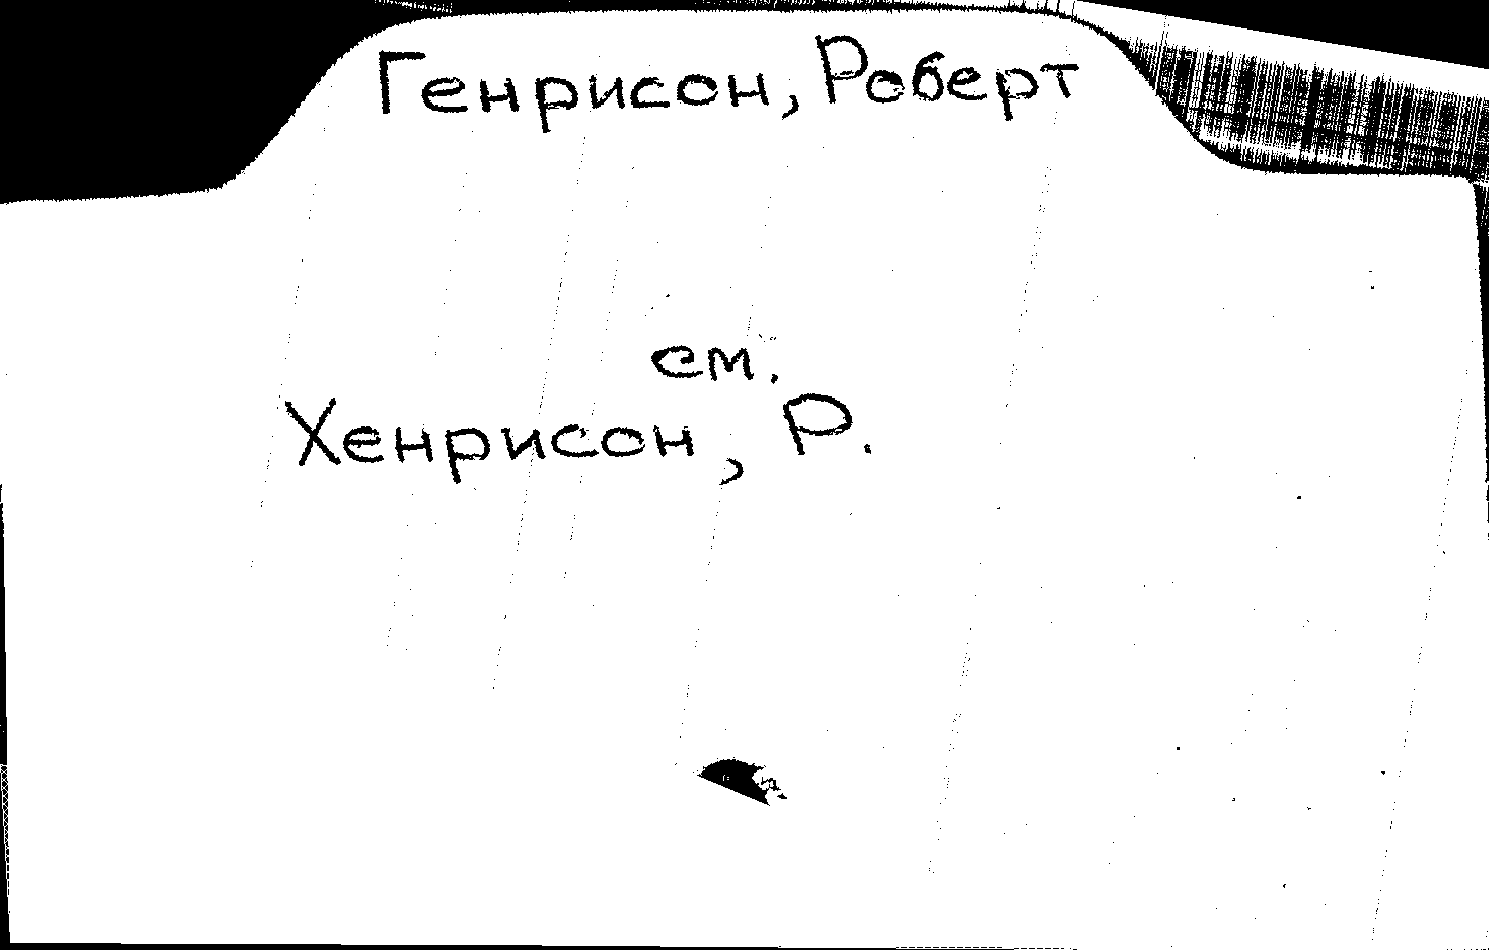 Генрисон, Роберт
см.
Хенрисон, Р.